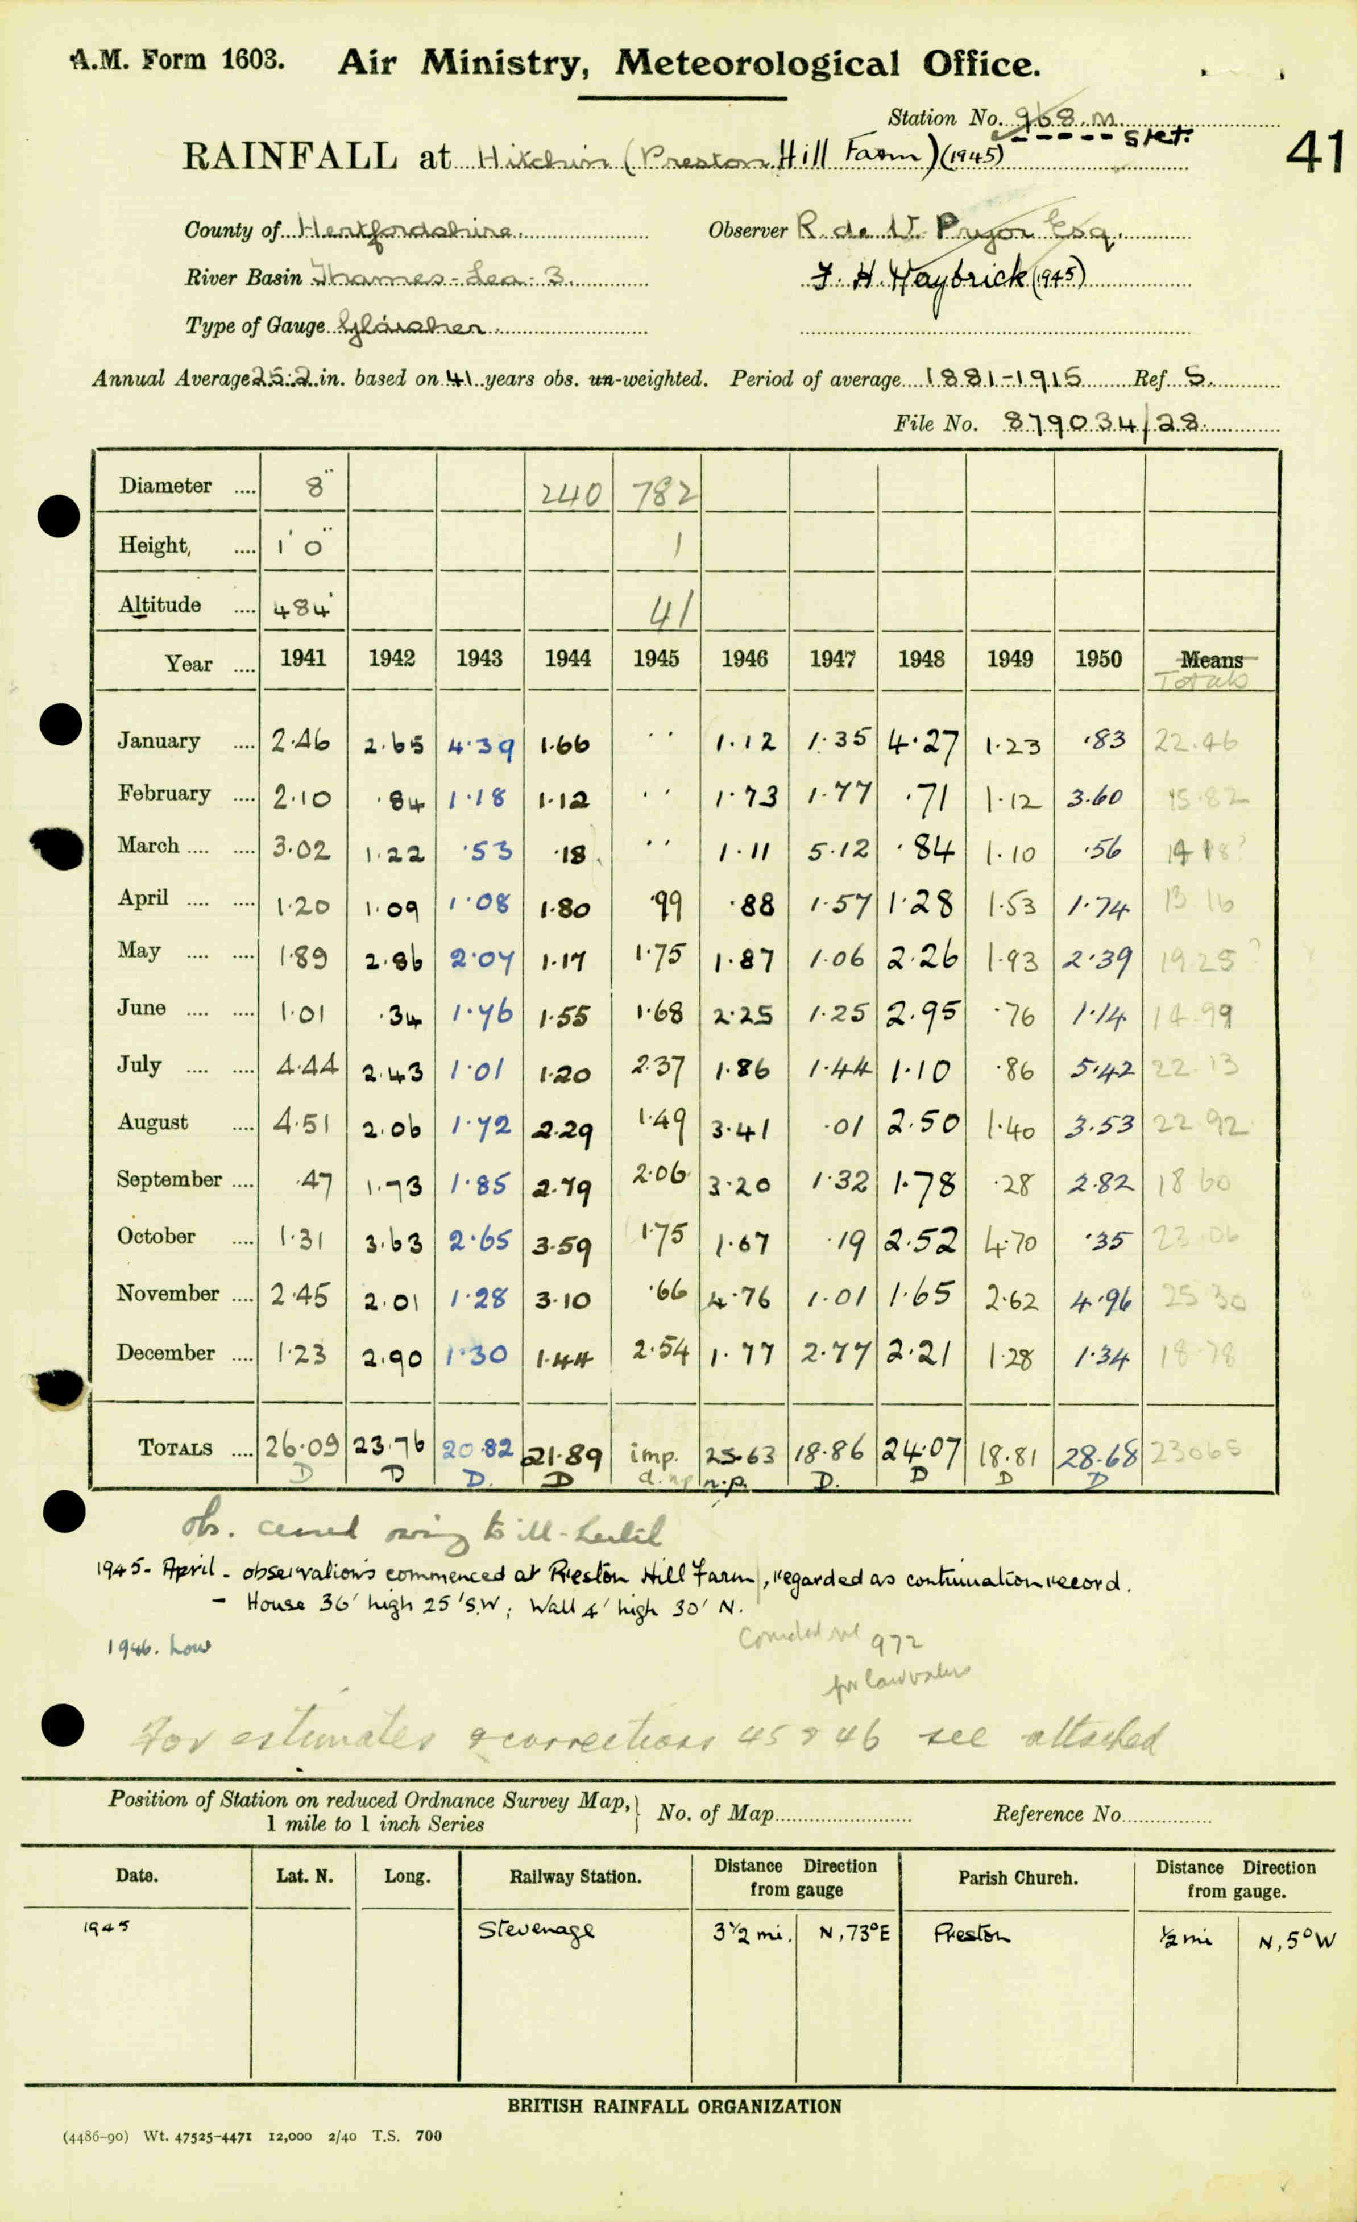 A.M. Form 1603. Air Ministry, Meteorological Office.
Station No. 968.m.
stet.
RAINFALL at Hitchin (Preston Hill Farm) (1945)
41
County of Hertfordshire. Observer R. de V. Pryor Esq.
River Basin Thames-Lea-3. F. H. Haybrick (1945)
Type of Gauge Glaisher.
Annual Average 25.2 in. based on 41 years obs. un-weighted. Period of average 1881-1915 Ref S.
File No. 879034/28
Diameter .... 8" 240 782
Height, .... 1' 0" 1
Altitude .... 484' 41
Year .... 1941 1942 1943 1944 1945 1946 1947 1948 1949 1950 Means
Totals
January .... 2.46 2.65 4.39 1.66 .. 1.12 1.35 4.27 1.23 .83 22.46
February .... 2.10 .84 1.18 1.12 .. 1.73 1.77 .71 1.12 3.60 15.82
March .... .... 3.02 1.22 .53 .18 .. 1.11 5.12 .84 1.10 .56
April .... .... 1.20 1.09 1.08 1.80 .99 .88 1.57 1.28 1.53 1.74 13.16
May .... .... 1.89 2.86 2.07 1.17 1.75 1.87 1.06 2.26 1.93 2.39 19.25?
June .... .... 1.01 .34 1.76 1.55 1.68 2.25 1.25 2.95 .76 1.14 14.99
July .... .... 4.44 2.43 1.01 1.20 2.37 1.86 1.44 1.10 .86 5.42 22.13
August .... 4.51 2.06 1.72 2.29 1.49 3.41 .01 2.50 1.40 3.53 22.92
September .... .47 1.73 1.85 2.79 2.06 3.20 1.32 1.78 .28 2.82 18.60
October .... 1.31 3.63 2.65 3.59 1.75 1.67 .19 2.52 4.70 .35 23.06
November .... 2.45 2.01 1.28 3.10 .66 4.76 1.01 1.65 2.62 4.96 25.30
December .... 1.23 2.90 1.30 1.44 2.54 1.77 2.77 2.21 1.28 1.34 18.78
TOTALS .... 26.09 23.76 20.82 21.89 imp. 25.63 18.86 24.07 18.81 28.68 23065
D D D. D d. np n.p. D. D D D
obs. ceased owing to ill-health
1945- April - observations commenced at Preston Hill Farm, regarded as continuation record.
- House 36' high 25' S.W; Wall 4' high 30' N.
1946. Low
972
for
For estimates & corrections 45 & 46 see attached
Position of Station on reduced Ordnance Survey Map, No. of Map Reference No.
1 mile to 1 inch Series
Date. Lat. N. Long. Railway Station. Distance Direction from gauge Parish Church. Distance Direction from gauge.
1945 Stevenage 3½ mi. N, 73°E Preston ½ mi N, 5°W
BRITISH RAINFALL ORGANIZATION
(4486-90) Wt. 47525-4471 12,000 2/40 T.S. 700